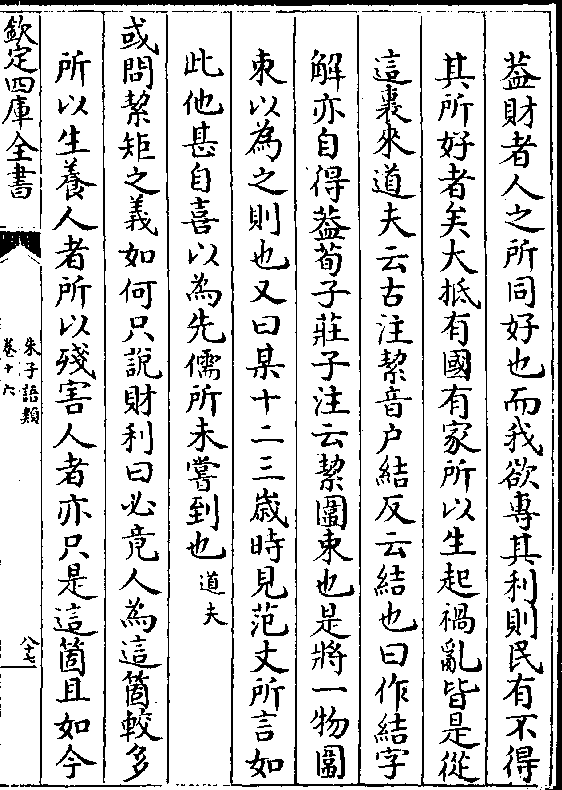 葢財者人之所同好也而我欲專其利則民有不得
其所好者矣大抵有國有家所以生起禍亂皆是從
這裏來道夫云古注絜音户結反云結也曰作結字
解亦自得葢荀子莊子注云絜圍束也是將一物圍
束以為之則也又曰某十二三歲時見范丈所言如
此他甚自喜以為先儒所未嘗到也道夫
或問絜矩之義如何只說財利曰必竟人為這箇較多
所以生養人者所以殘害人者亦只是這箇且如今
欽定四庫全書
朱子語類
卷十六